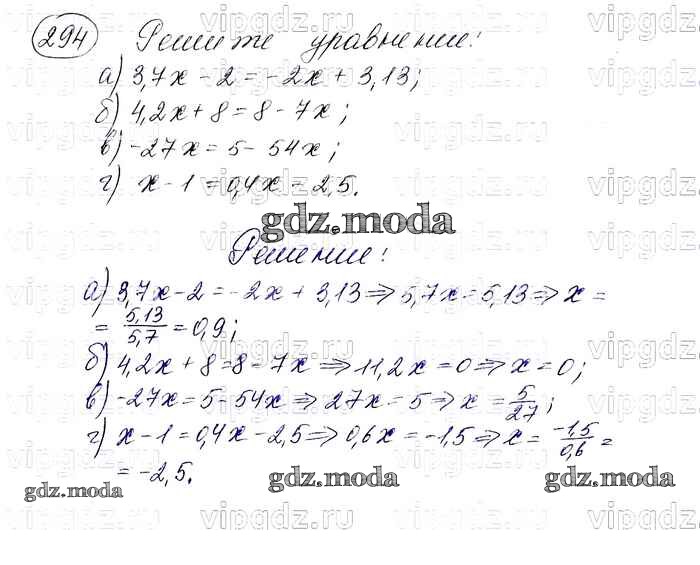 294 Решите уравнение:
а) 3,7x - 2 = -2x + 3,13;
б) 4,2x + 8 = 8 - 7x;
в) -27x = 5 - 54x;
г) x - 1 = 0,4x - 2,5.
gdz.moda
Решение:
а) 3,7x - 2 = -2x + 3,13 ⇒ 5,7x = 5,13 ⇒ x =
= 5,13/5,7 = 0,9;
б) 4,2x + 8 = 8 - 7x ⇒ 11,2x = 0 ⇒ x = 0;
в) -27x = 5 - 54x ⇒ 27x = 5 ⇒ x = 5/27;
г) x - 1 = 0,4x - 2,5 ⇒ 0,6x = -1,5 ⇒ x = -1,5/0,6 =
= -2,5.
gdz.moda gdz.moda gdz.moda
vipgdz.ru